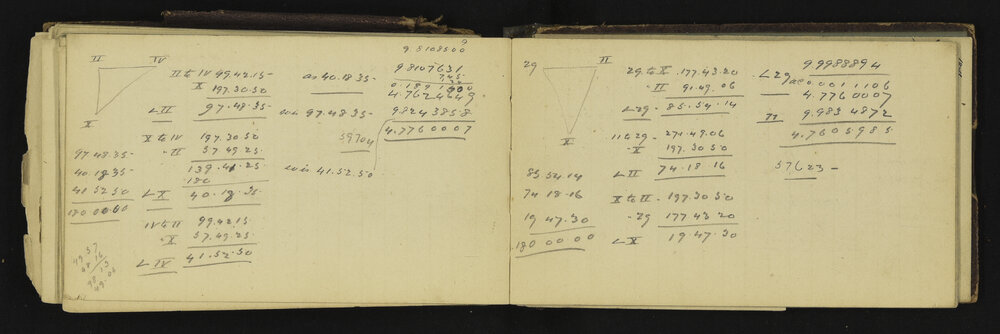 II IV
X
II to IV 99.42.15
X 197.30.50
∠ II 97.48.35
X to IV 197.30.50
" II 57.49.25
139.41.25
180
∠ X 40.18.35
IV to II 99.42.15
" X 57.49.25
∠ IV 41.52.50
97.48.35
40.18.35
41 52 50
180 00 00
49 37
98.13
49.06
as 40.18.35
97.48.35
41.52.50
9.5108500
9.8107631
0.1891
4.762
9.9243858
4.7760007
59704
29 II
X
29 to X 177.43.20
" II 91.49.06
∠ 29 85.54.14
II to 29 271.49.06
" X 197.30.50
∠ II 74.18.16
X to II 197.30 50
" 29 177 43 20
∠ X 19 47.30
85.54.14
74 18.16
19 47.30
180 00 00
9.9988894
∠ 29 ac 0001 1106
4.7760007
II 9.983 4872
4.7605985
57623